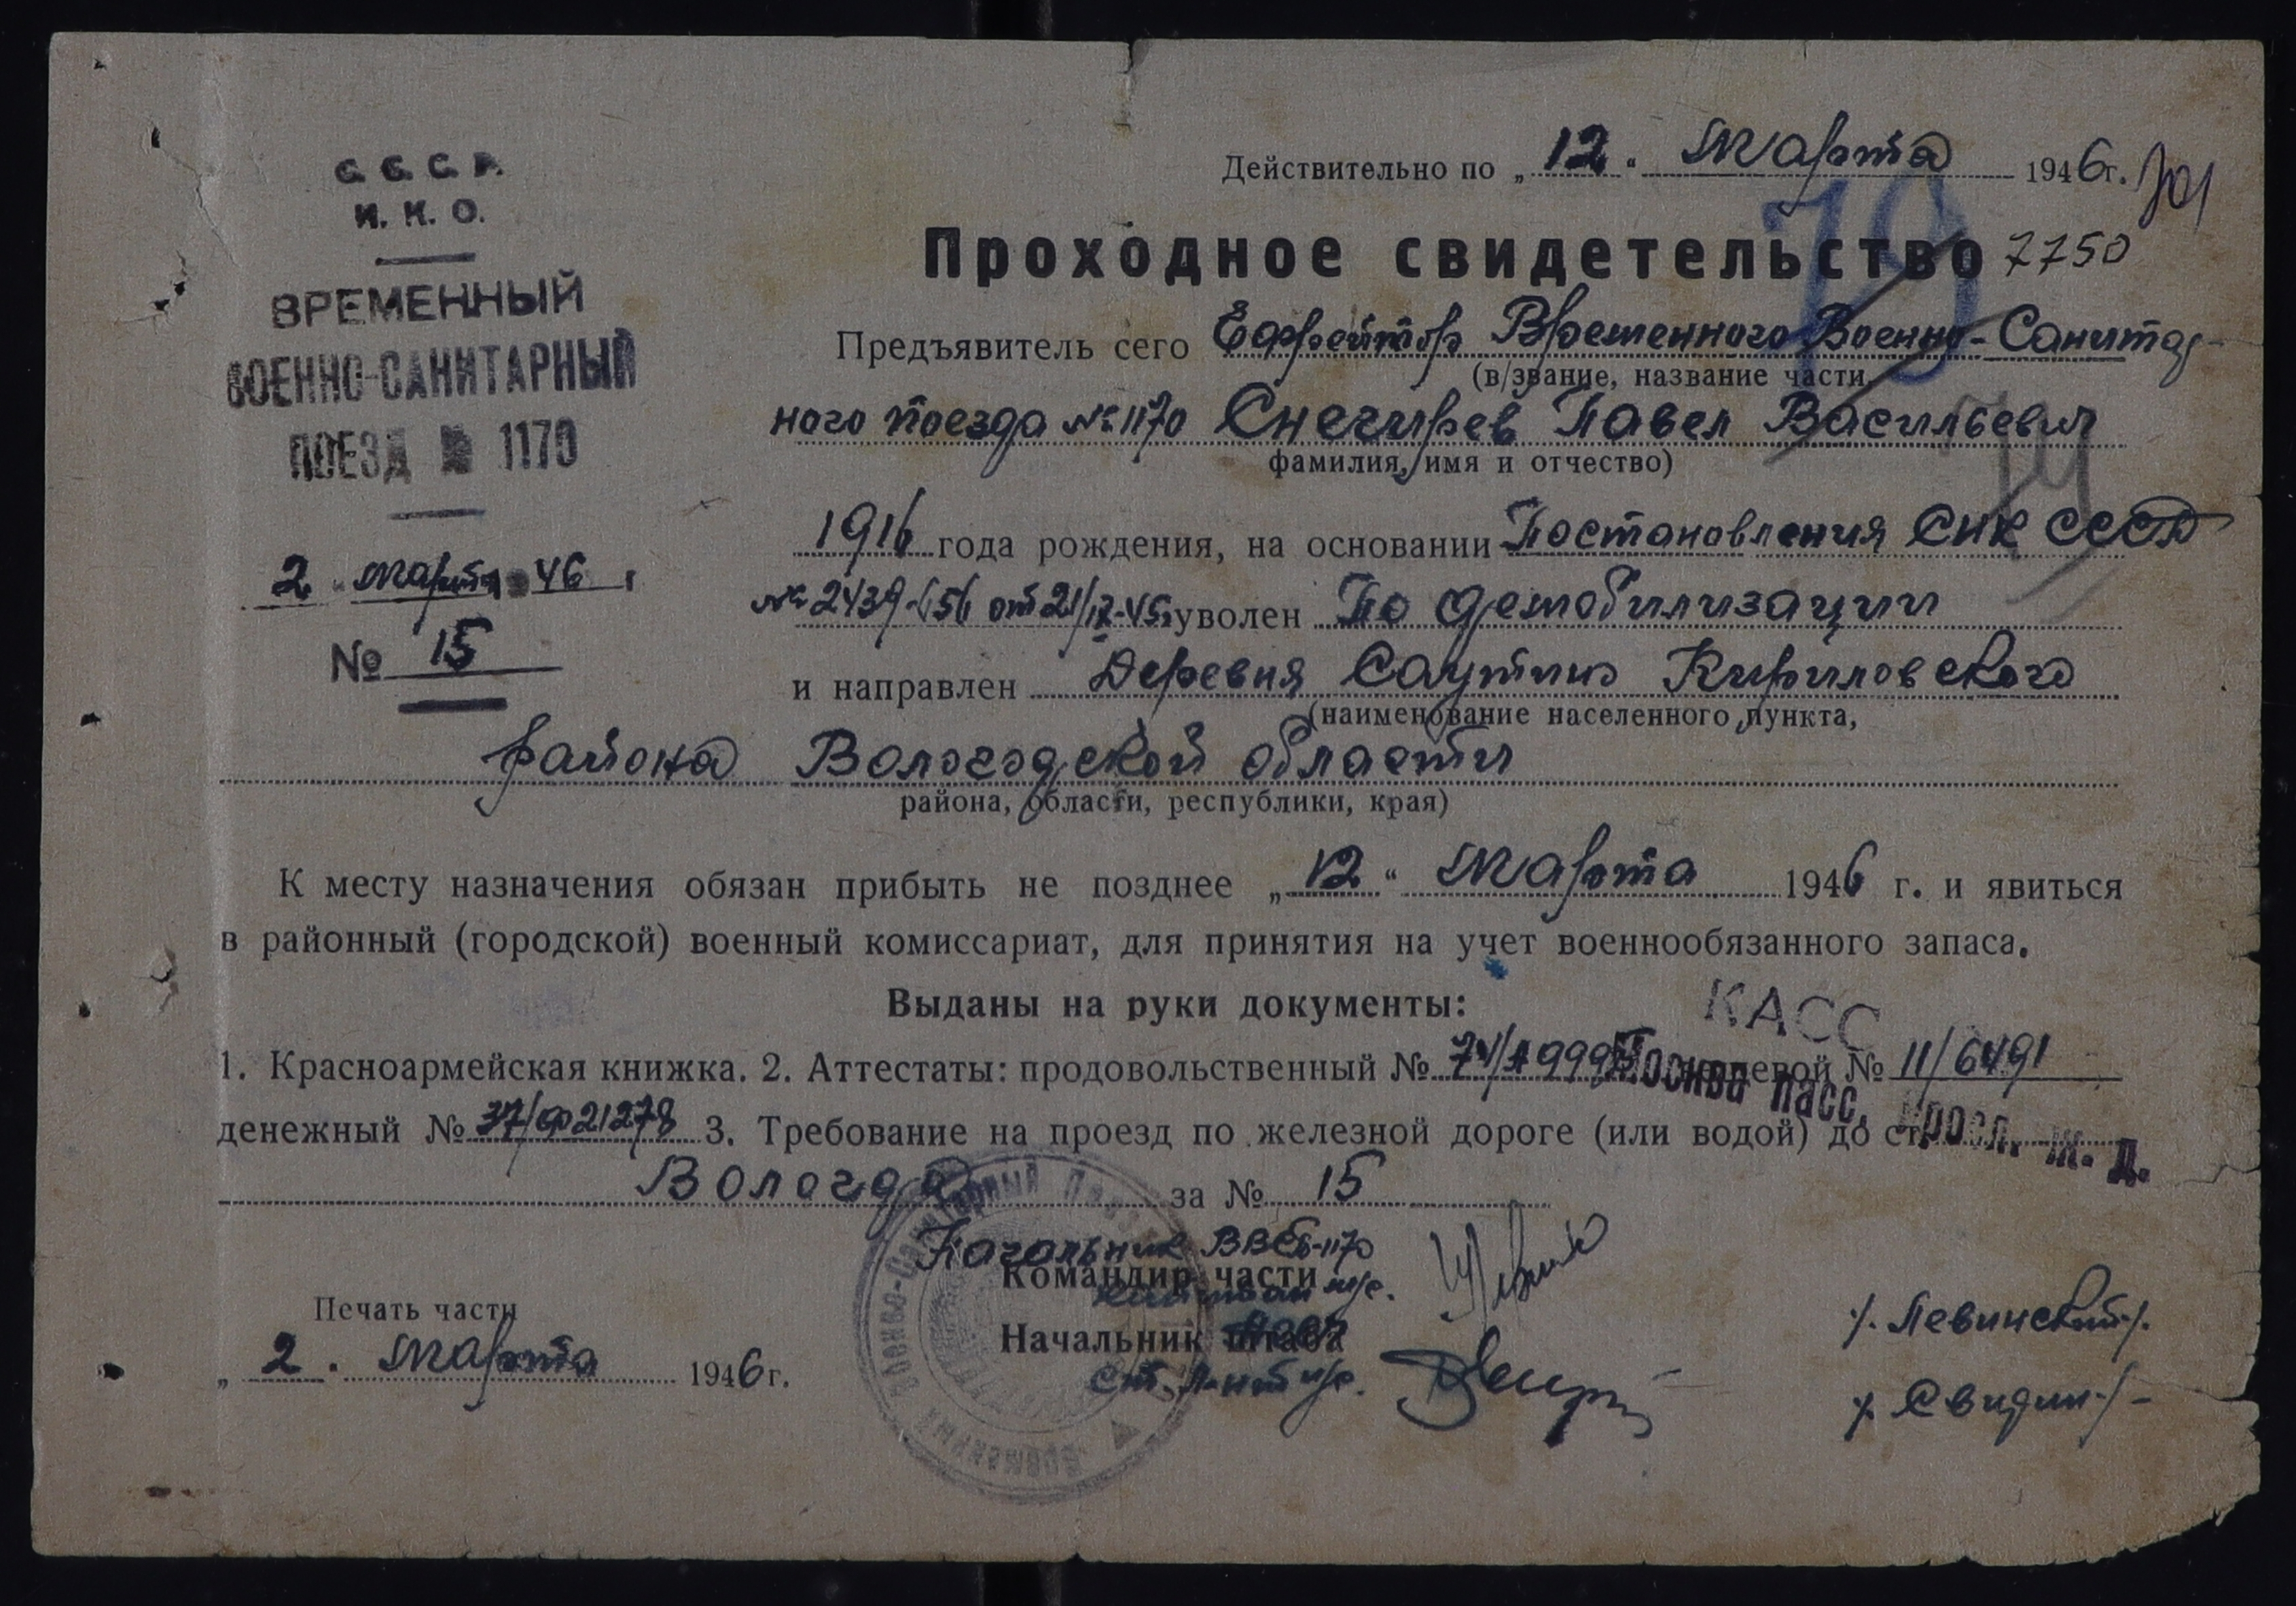 С. С. С. Р.
Н. К. О.
ВРЕМЕННЫЙ
ВОЕННО-САНИТАРНЫЙ
ПОЕЗД № 1170
2 марта 46 г
№ 15
Действительно по „12“ Марта 1946г.
Проходное свидетельство 7750
79
Предъявитель сего Ефрейтор Временного Военно-Санитар-
(в/звание, название части,
ного поезда №1170 Снегирев Павел Васильевич
фамилия, имя и отчество)
1916 года рождения, на основании Постановления СНК СССР
№ 2439-656 от 21/IX-45г уволен По демобилизации
и направлен Деревня Саутино Кириловского
(наименование населенного пункта,
района Вологодской области
района, области, республики, края)
К месту назначения обязан прибыть не позднее „12“ Марта 1946 г. и явиться
в районный (городской) военный комиссариат, для принятия на учет военнообязанного запаса.
Выданы на руки документы:
КАСС
1. Красноармейская книжка. 2. Аттестаты: продовольственный № № 11/6491
Москва пасс. Яросл. ж. д.
денежный № 37/ф21278 3. Требование на проезд по железной дороге (или водой) до ст.
Вологда за № 15
Начальник ВВСП-1170
Командир части
капитан м/с.
/. Левинский./.
Печать части
Начальник штаба
„2. Марта 1946г.
ст. л-нт м/с.
/. Свидин./-